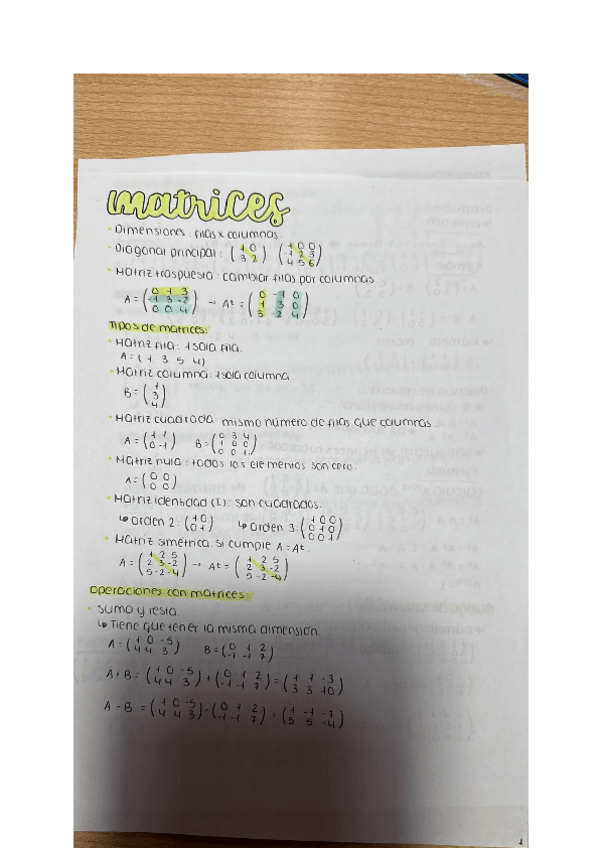 matrices
· Dimensiones: filas x columnas.
· Diagonal principal: (1 0 / 3 2) (1 0 0 / 1 2 3 / 4 5 6)
· Matriz traspuesta: cambiar filas por columnas
A = (0 1 3 / -1 3 -2 / 0 0 4) → At = (0 -1 0 / 1 3 0 / 3 -2 4)
Tipos de matrices:
· Matriz fila: 1 sola fila.
A = (1 3 5 4)
· Matriz columna: 1 sola columna
B = (1 / 3 / 4)
· Matriz cuadrada: mismo número de filas que columnas.
A = (1 1 / 0 -1) B = (0 3 4 / 1 0 0 / 0 0 1)
· Matriz nula: todos los elementos son cero.
A = (0 0 / 0 0)
· Matriz identidad (I): son cuadradas.
↳ Orden 2: (1 0 / 0 1) ↳ Orden 3: (1 0 0 / 0 1 0 / 0 0 1)
· Matriz simétrica: si cumple A = At.
A = (1 2 5 / 2 3 -2 / 5 -2 -4) → At = (1 2 5 / 2 3 -2 / 5 -2 -4)
Operaciones con matrices:
· Suma y resta.
↳ Tiene que tener la misma dimensión.
A = (1 0 -5 / 4 4 3) B = (0 1 2 / -1 -1 7)
A + B = (1 0 -5 / 4 4 3) + (0 1 2 / -1 -1 7) = (1 1 -3 / 3 3 10)
A - B = (1 0 -5 / 4 4 3) - (0 1 2 / -1 -1 7) = (1 -1 -7 / 5 5 -4)
1